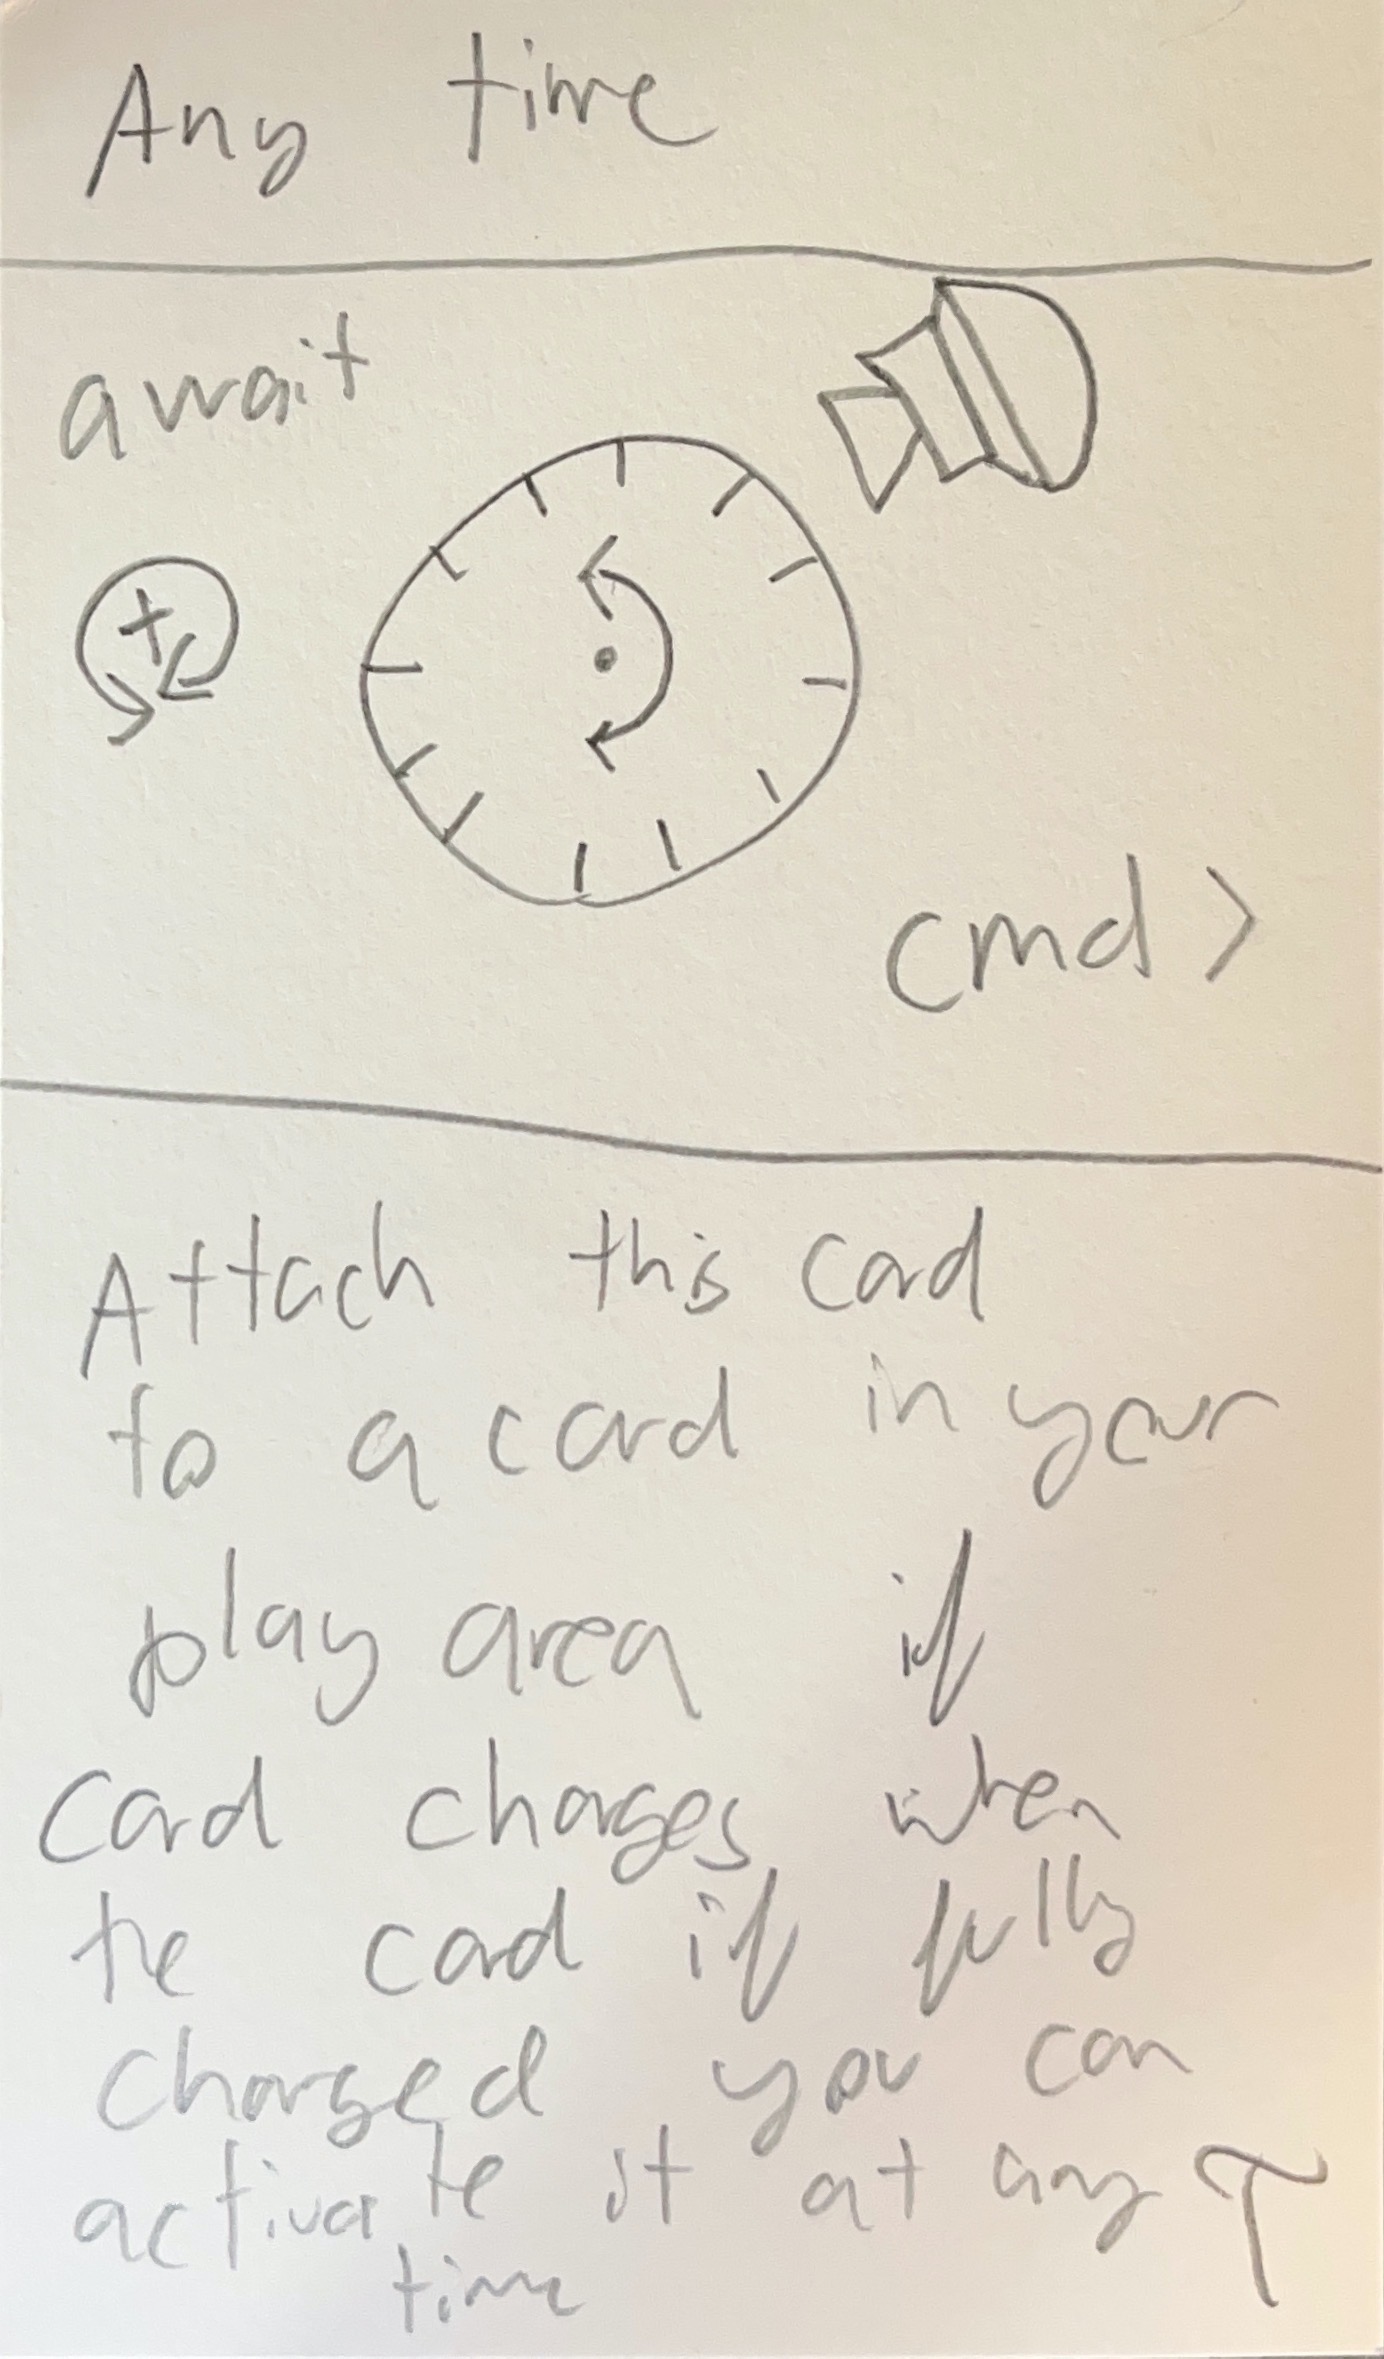 Any time
await
+
cmd >
Attach this card
to a card in your
play area if
card charges when
the card if fully
charged you can
activate it at any T
time